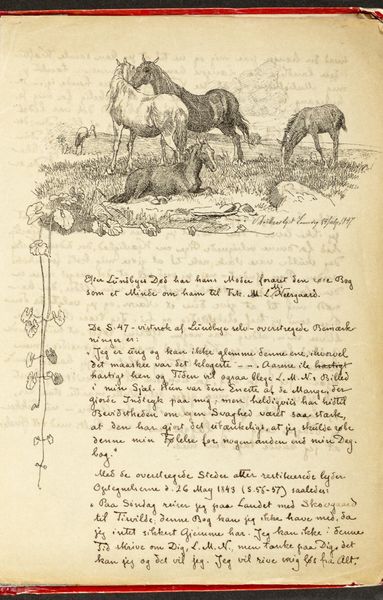 Vedbæk 1847
Efter Lundbyes Død har hans Moder foræret den røde Bog
som et Minde om ham til Frk. M. L. Neergaard.
De S. 47 - vistnok af Lundbye selv - overstregede Bemærk-
ninger er:
"Jeg er ung og kan ikke glemme denne ene, ihvorvel
det maaske var det klogeste - - . Aarene ile hastigt
hastigt hen og Tiden vil ogsaa blege L. M. N's Billed
i min Sjæl. Hun var den Eneste af de Mange, der
gjorde Indtryk paa mig; men heldigviis har hidtil
Bevidstheden om egen Svaghed været saa stærk,
at den har gjort det utænkeligt, at jeg skulde røbe
denne min Følelse for nogen anden end min Dag-
bog."
Med de overstregede Steder atter restituerede lyder
Optegnelserne d. 26 May 1843 (S. 55-57) saaledes:
"Paa Søndag reiser jeg paa Landet med Skovgaard
til Tirvilde, denne Bog kan jeg ikke have med, da
jeg intet sikkert Gjemme har. Jeg kan ikke i denne
Tid skrive om Dig, L. M. N., men tænke paa Dig, det
kan jeg og det vil jeg. Jeg vil rive mig løs fra Alt,